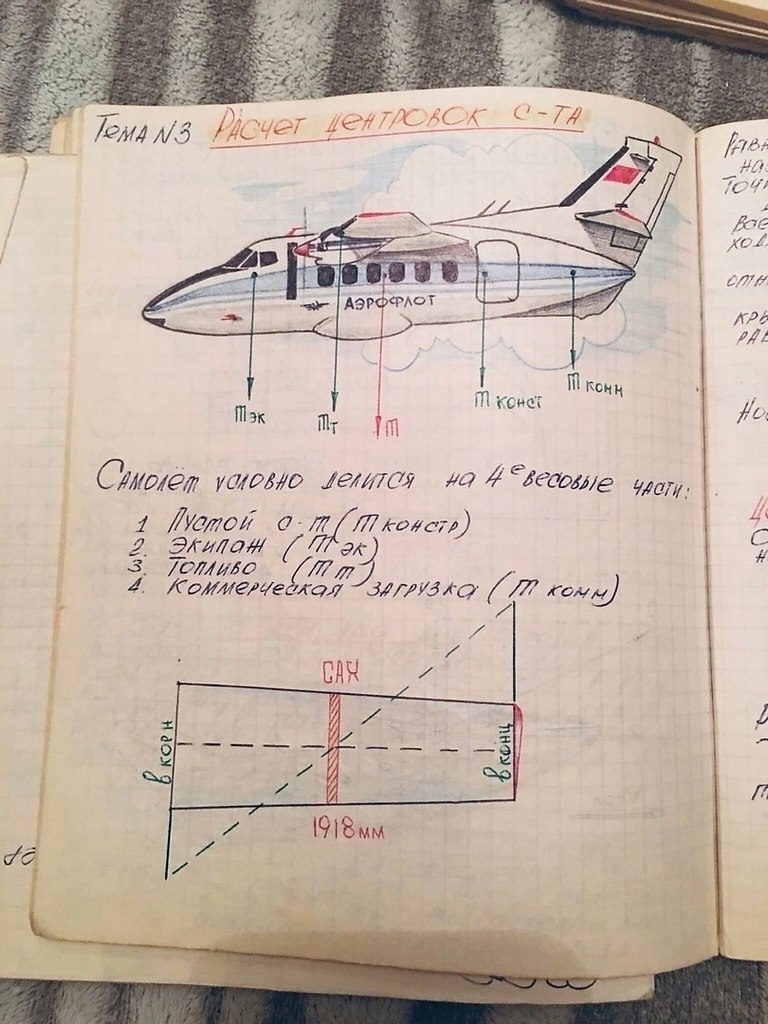 Тема N3 Расчет центровок с-та
АЭРОФЛОТ
m эк
m т
m
m конст
m комм
Самолёт условно делится на 4е весовые части:
1 Пустой с-т (m констр)
2. Экипаж (m эк)
3. Топливо (m т)
4. Коммерческая загрузка (m комм)
САХ
в корн
в конц
1918 мм